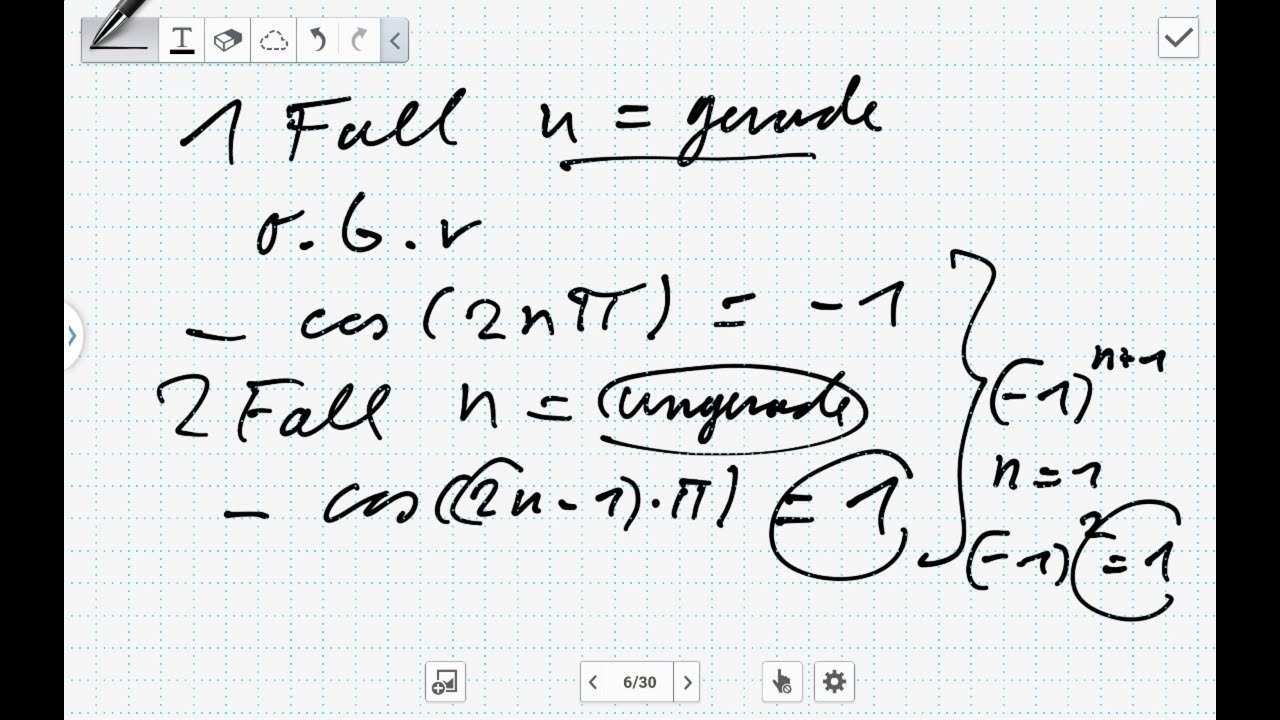 T
1 Fall n = gerade
o.B.
- cos(2nπ) = -1
2 Fall n = ungerade
- cos((2n-1)·π) = 1
(-1)^{n+1}
n = 1
(-1)^2 = 1
6/30